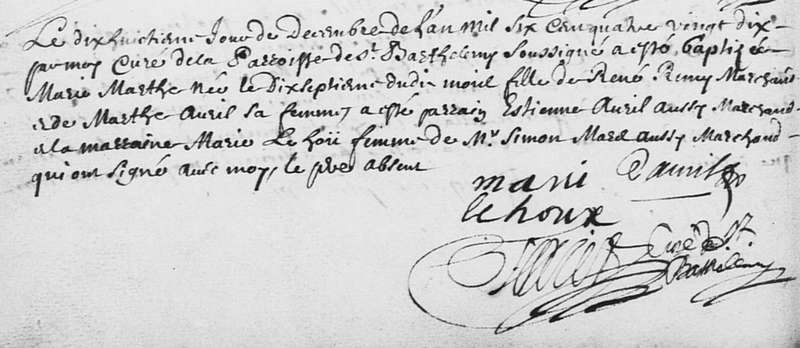 Le dixhuictiesme Jour de Decembre de l'an Mil Six Cen quatre vingt dix
par moy Curé de la Parroisse de St. Barthelemy Soussigné a esté baptizée
Marie Marthe Née le Dixseptiesme dudit mois fille de René Remy Marchand
& de Marthe Avril sa femme, a esté parrain Estienne Avril aussy Marchand
& la marraine Marie Le hou femme de Mr. Simon aussy Marchand
qui ont signé avec moy, le pere absent
mari Davril
lehoux
Curé de St.
Barthelemy